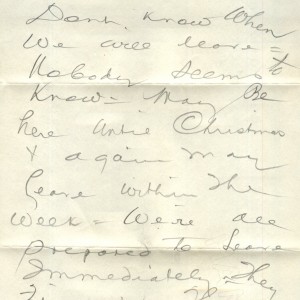 Dont Know When
We will leave = to
Nobody seems
Know = May Be
here until Christmas
& again may
leave within the
week = We're all
prepared to leave
Immediately = They